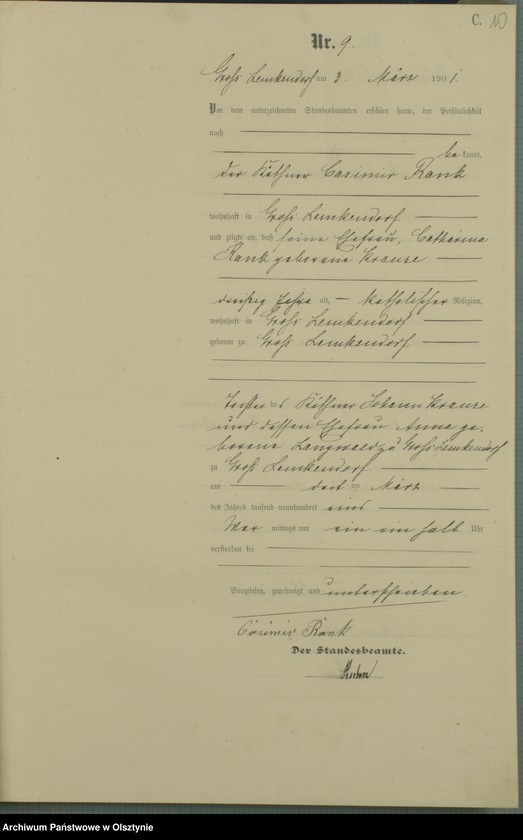 C. 10
Nr. 9.
Groß Lemkendorf am 3. März 1901.
Vor dem unterzeichneten Standesbeamten erschien heute, der Persönlichkeit
nach
be kannt,
der Käthner Casimir Rank
wohnhaft in Groß Lemkendorf
und zeigte an, daß seine Ehefrau, Catharina
Rank geborene Krause
dreißig Jahre alt, katholischer Religion,
wohnhaft in Groß Lemkendorf
geboren zu Groß Lemkendorf
Tochter des Käthner Johann Krause
und dessen Ehefrau Anna ge-
borene Langwald zu Groß Lemkendorf
zu Groß Lemkendorf
am März
des Jahres tausend neunhundert eins
Vor mittags um ein ein halb Uhr
verstorben sei
Vorgelesen, genehmigt und unterschrieben
Casimir Rank
Der Standesbeamte.
Archiwum Państwowe w Olsztynie